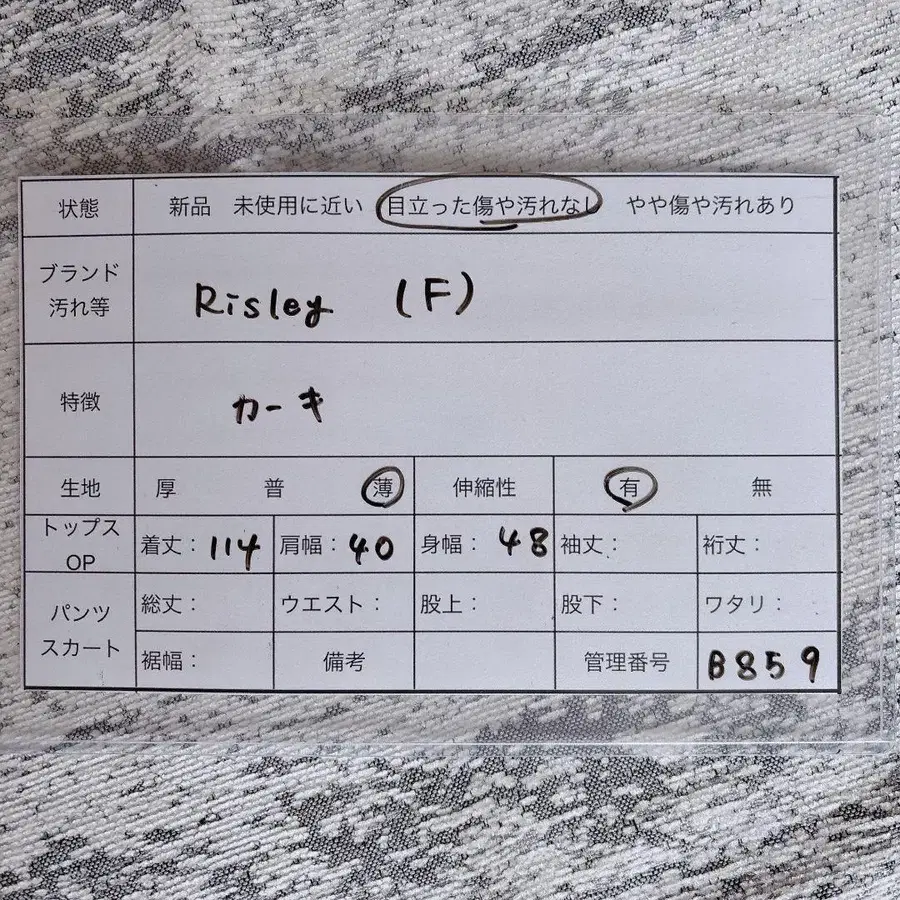 状態 新品 未使用に近い 目立った傷や汚れなし やや傷や汚れあり
ブランド
汚れ等
Risley (F)
特徴 カーキ
生地 厚 普 薄 伸縮性 有 無
トップス
OP
着丈: 114 肩幅: 40 身幅: 48 袖丈: 裄丈:
パンツ
スカート
総丈: ウエスト: 股上: 股下: ワタリ:
裾幅: 備考 管理番号 B859